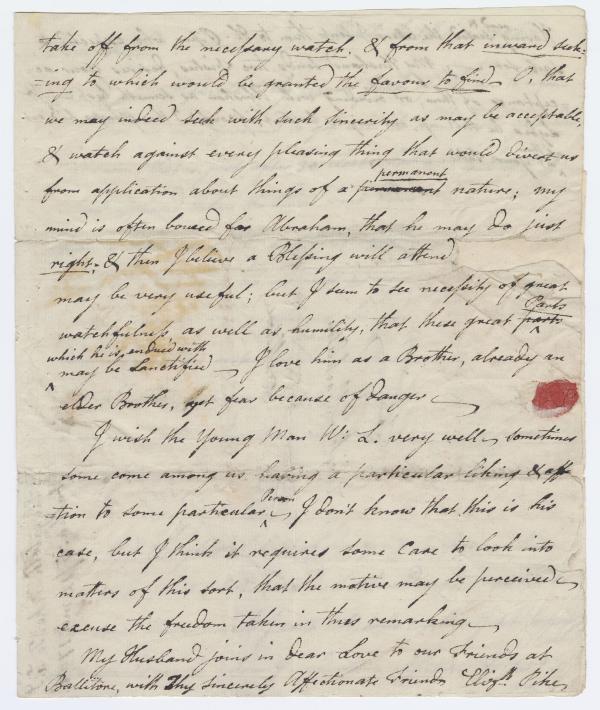 take off from the necessary watch. & from that inward seek=
=ing to which would be granted the favour to find. O, that
we may indeed seek with such sincerity as may be acceptable,
& watch against every pleasing thing that would divert us
permanent
from application about things of a permanent nature; my
mind is often bowed for Abraham, that he may do just
right; & then I believe a Blessing will attend
may be very useful; but I seem to see necessity of great
Parts
watchfulness as well as humility, that these great parts
which he is, endued with
may be Sanctified — I love him as a Brother, already an
elder Brother, yet fear because of danger —
I wish the Young Man Wm. L. very well — sometimes
some come among us having a particular liking & aff
Person
tion to some particular — I don't know that this is his
case, but I think it requires some Care to look into
matters of this sort, that the motive may be perceived —
excuse the freedom taken in thus remarking —
My Husband joins in dear Love to our Friends at
Ballitore, with Thy sincerely Affectionate Friend Elizth. Pike